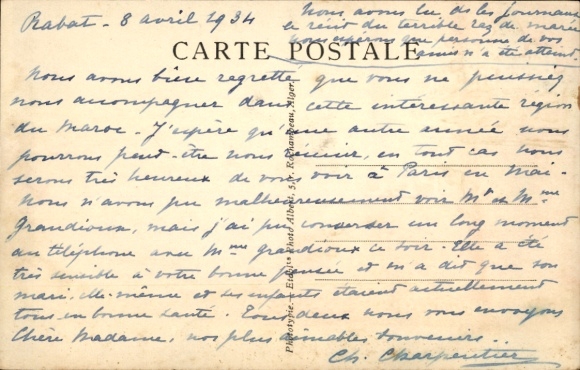 Rabat - 8 avril 1934
Nous avons lu de les journaux
le récit du terrible raz de marée
nous espérons que personne de vos
amis n'a été atteint.
CARTE POSTALE
Nous avons bien regretté que vous ne puissiez
nous accompagner dans cette intéressante région
du Maroc - J'espère qu'une autre année nous
pourrons peut-être nous réunir, en tout cas nous
serons très heureux de vous voir à Paris en Mai -
Nous n'avons pu malheureusement voir Mr et Mme
Grandioux, mais j'ai pu converser un long moment
au téléphone avec Mme Grandioux ce soir. Elle a été
très sensible à votre bonne pensée et m'a dit que son
mari, elle-même et ses enfants étaient actuellement
tous en bonne santé. Tous deux nous vous envoyons
Chère Madame, nos plus aimables souvenirs..
Ch. Charpentier
Phototypie - Photo Albert, 5, r. Rochambeau, Alger